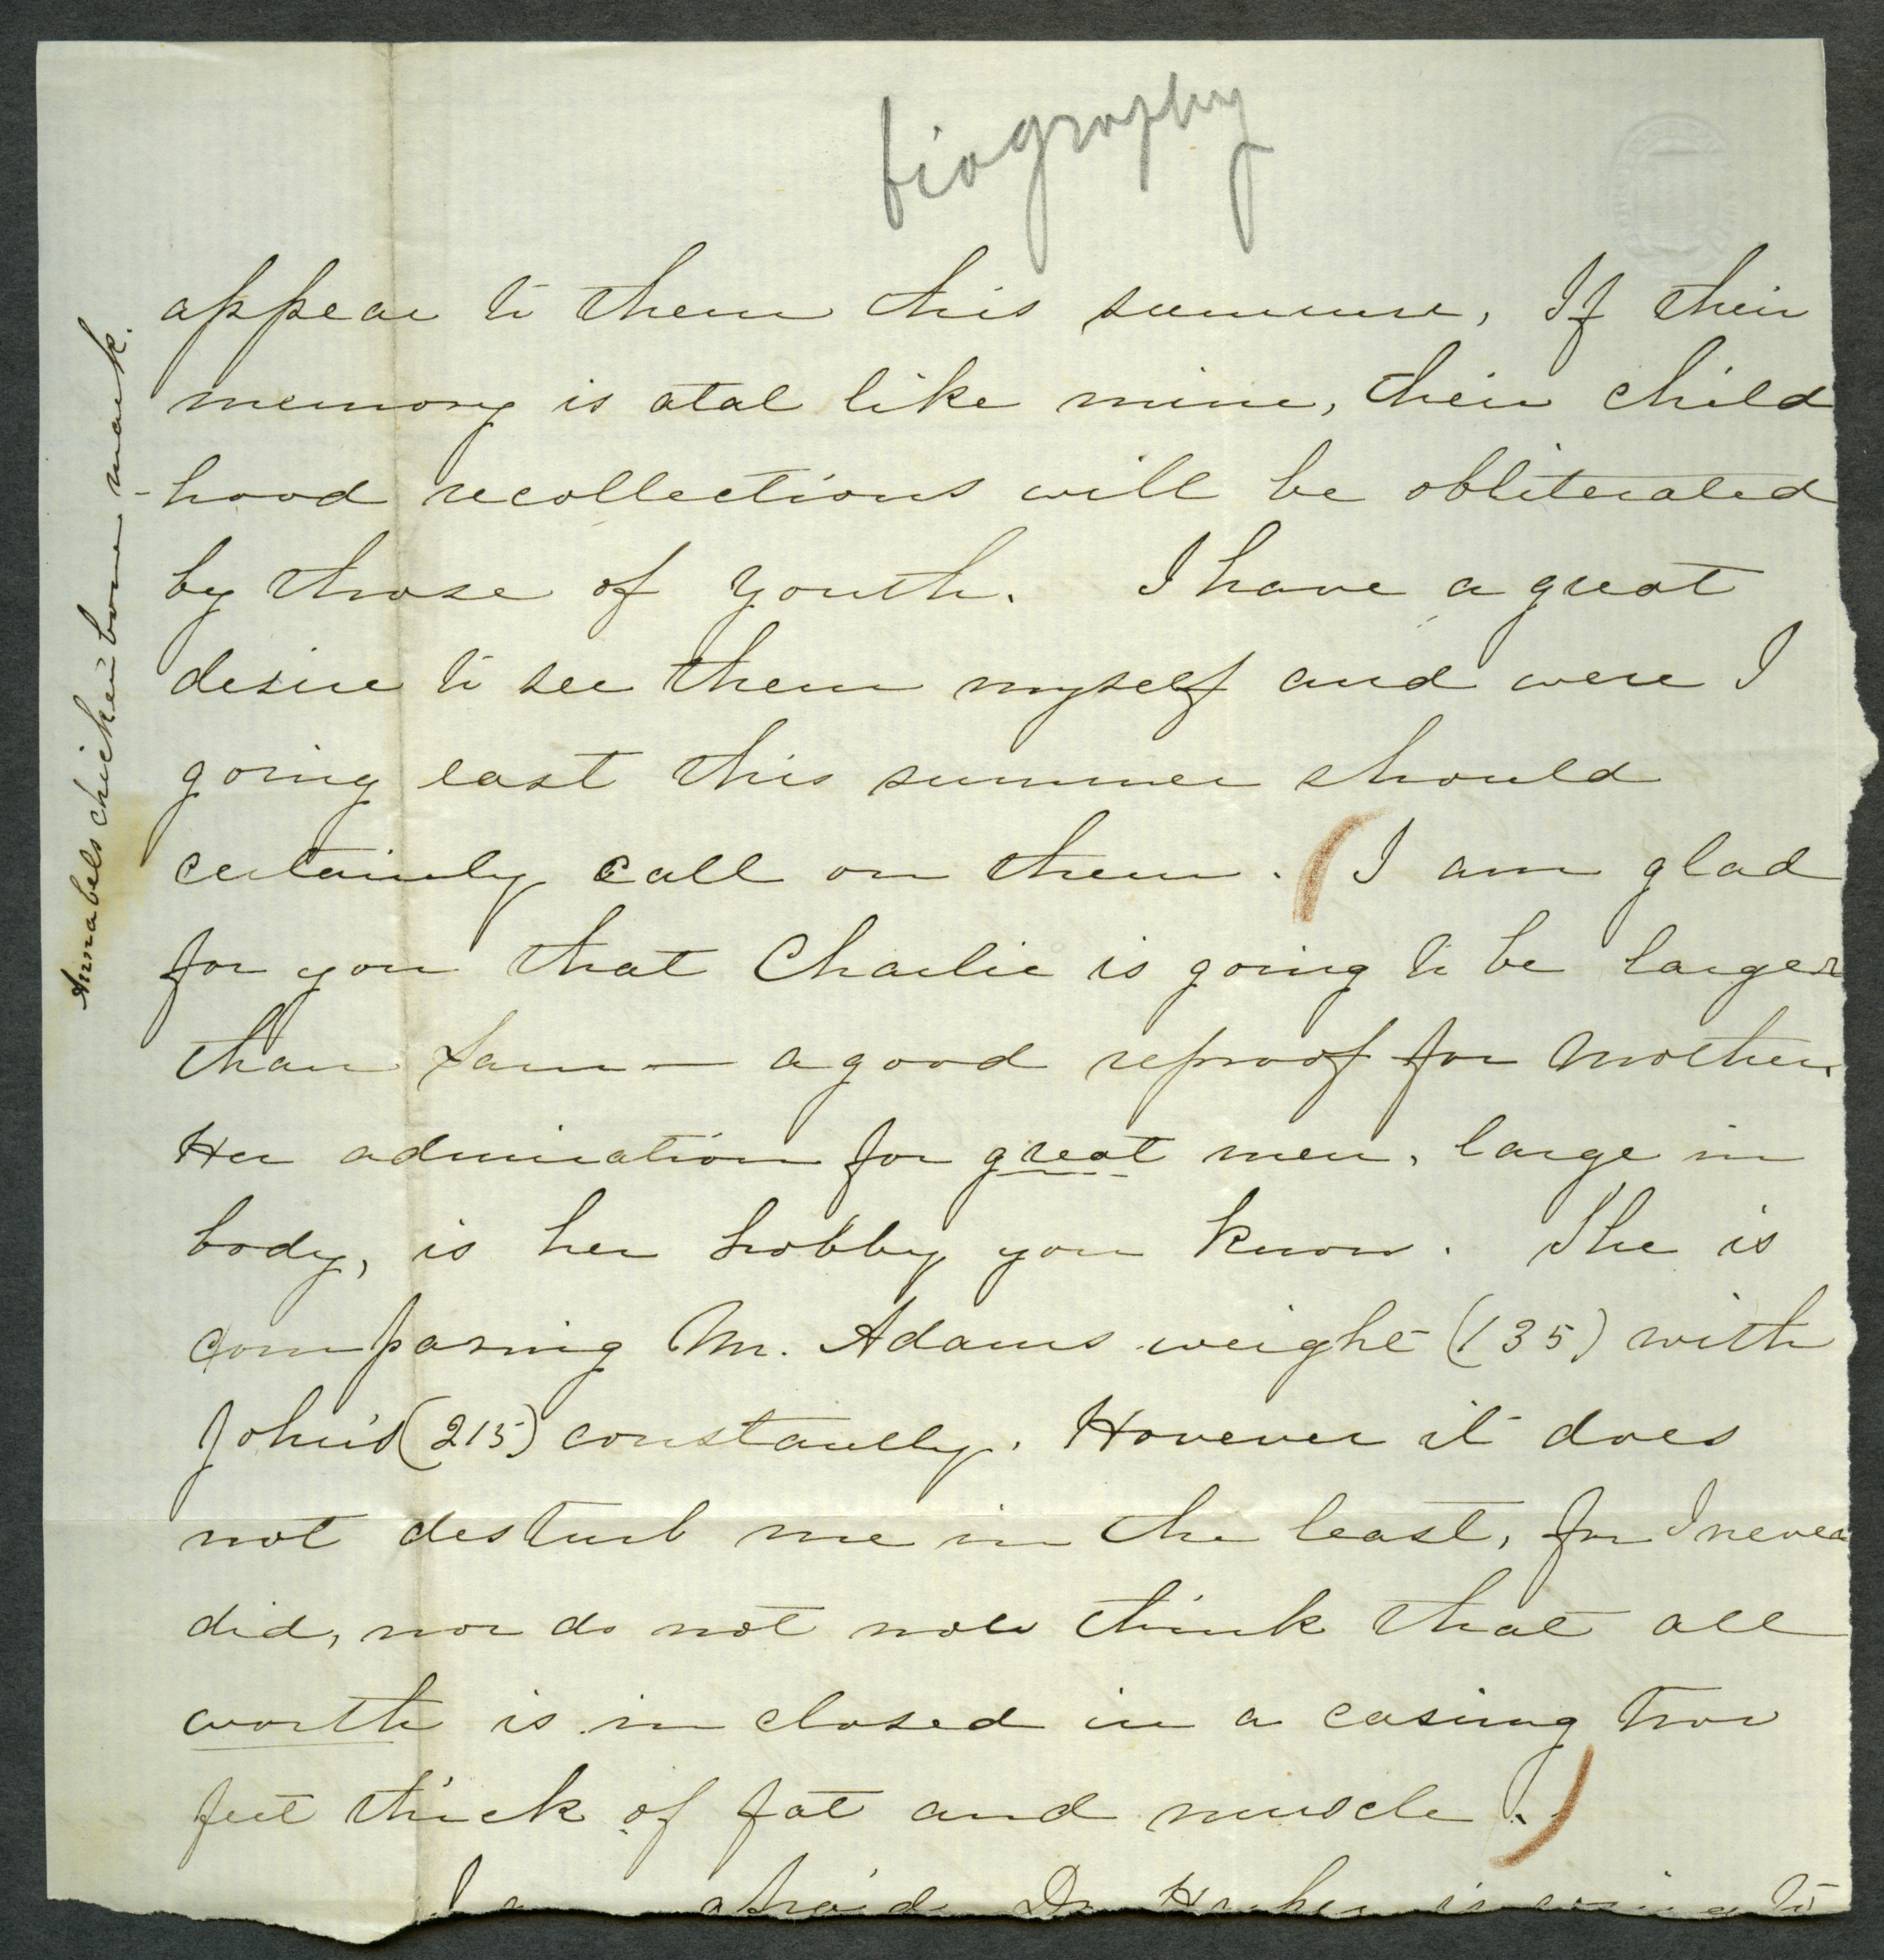 biography
appear to them this summer, If their
memory is atal like mine, their child
-hood recollections will be obliterated
by those of youth. I have a great
desire to see them myself and were I
going east this summer should
certainly call on them. (I am glad
for you that Charlie is going to be larger
than Sam — a good reproof for Mother.
Her admiration for great men, large in
body, is her hobby you know. She is
comparing Mr. Adams weight (135) with
John's (215) constantly. However it does
not desturb me in the least, for I never
did, nor do not now think that all
worth is in closed in a casing two
feet thick of fat and muscle.)
I am afraid Dr. is going to
Annabels chicken bone mark.